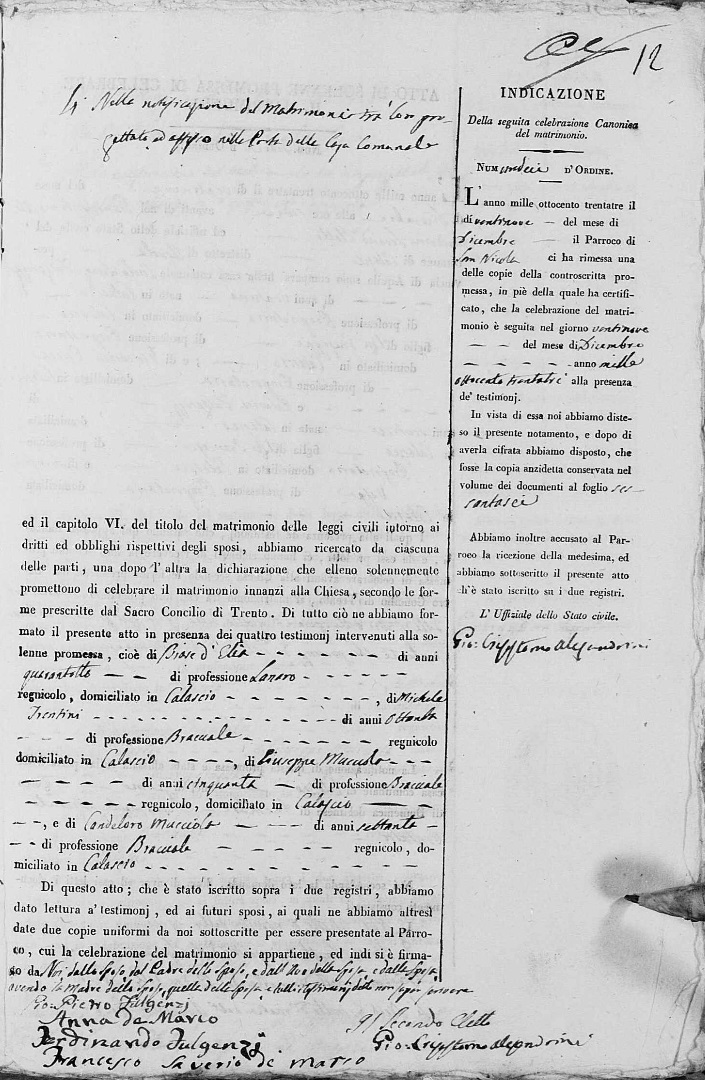 12
4. Nella notificazione del Matrimonio tra loro pro-
gettato ed affisso nella Porta della Casa Comunale
ed il capitolo VI. del titolo del matrimonio delle leggi civili intorno ai
dritti ed obblighi rispettivi degli sposi, abbiamo ricercato da ciascuna
delle parti, una dopo l'altra la dichiarazione che elleno solennemente
promettono di celebrare il matrimonio innanzi alla Chiesa, secondo le for-
me prescritte dal Sacro Concilio di Trento. Di tutto ciò ne abbiamo for-
mato il presente atto in presenza dei quattro testimonj intervenuti alla so-
lenne promessa, cioè di Biase d'Elia di anni
quarantotto di professione Lanaro
regnicolo, domiciliato in Calascio, di Michele
Trentini di anni Ottanta
di professione Bracciale regnicolo
domiciliato in Calascio, di Giuseppe
di anni cinquanta di professione Bracciale
regnicolo, domiciliato in Calascio
, e di Candeloro Mucciola di anni settanta
di professione Bracciale regnicolo, do-
miciliato in Calascio
Di questo atto; che è stato iscritto sopra i due registri, abbiamo
dato lettura a' testimonj, ed ai futuri sposi, ai quali ne abbiamo altresì
date due copie uniformi da noi sottoscritte per essere presentate al Párro-
co, cui la celebrazione del matrimonio si appartiene, ed indi si è firma-
to da Noi dallo sposo dal Padre dello sposo, e dall'Avo della sposa, e dalla sposa
avendo la madre dello sposo, quella della sposa e li testimonj detto non saper scrivere
Gio: Pietro Fulgenzj
Anna de Marco
Ferdinando Fulgenzj
Francesco Saverio de Marco
Il Secondo Eletto
Gio: Crisostomo Alesandrini
INDICAZIONE
Della seguita celebrazione Canonica
del matrimonio.
NUM undeci D'ORDINE.
L'anno mille ottocento trentatre il
dì ventinove del mese di
Dicembre il Parroco di
San Nicola ci ha rimessa una
delle copie della controscritta pro-
messa, in piè della quale ha certifi-
cato, che la celebrazione del matri-
monio è seguita nel giorno ventinove
del mese di Dicembre
anno mille
ottocento trentatre alla presenza
de' testimonj.
In vista di essa noi abbiamo diste-
so il presente notamento, e dopo di
averla cifrata abbiamo disposto, che
fosse la copia anzidetta conservata nel
volume dei documenti al foglio ses-
santasei
Abbiamo inoltre accusato al Par-
roco la ricezione della medesima, ed
abbiamo sottoscritto il presente atto
ch'è stato iscritto su i due registri.
L' Uffiziale dello Stato civile.
Gio: Crisostomo Alesandrini